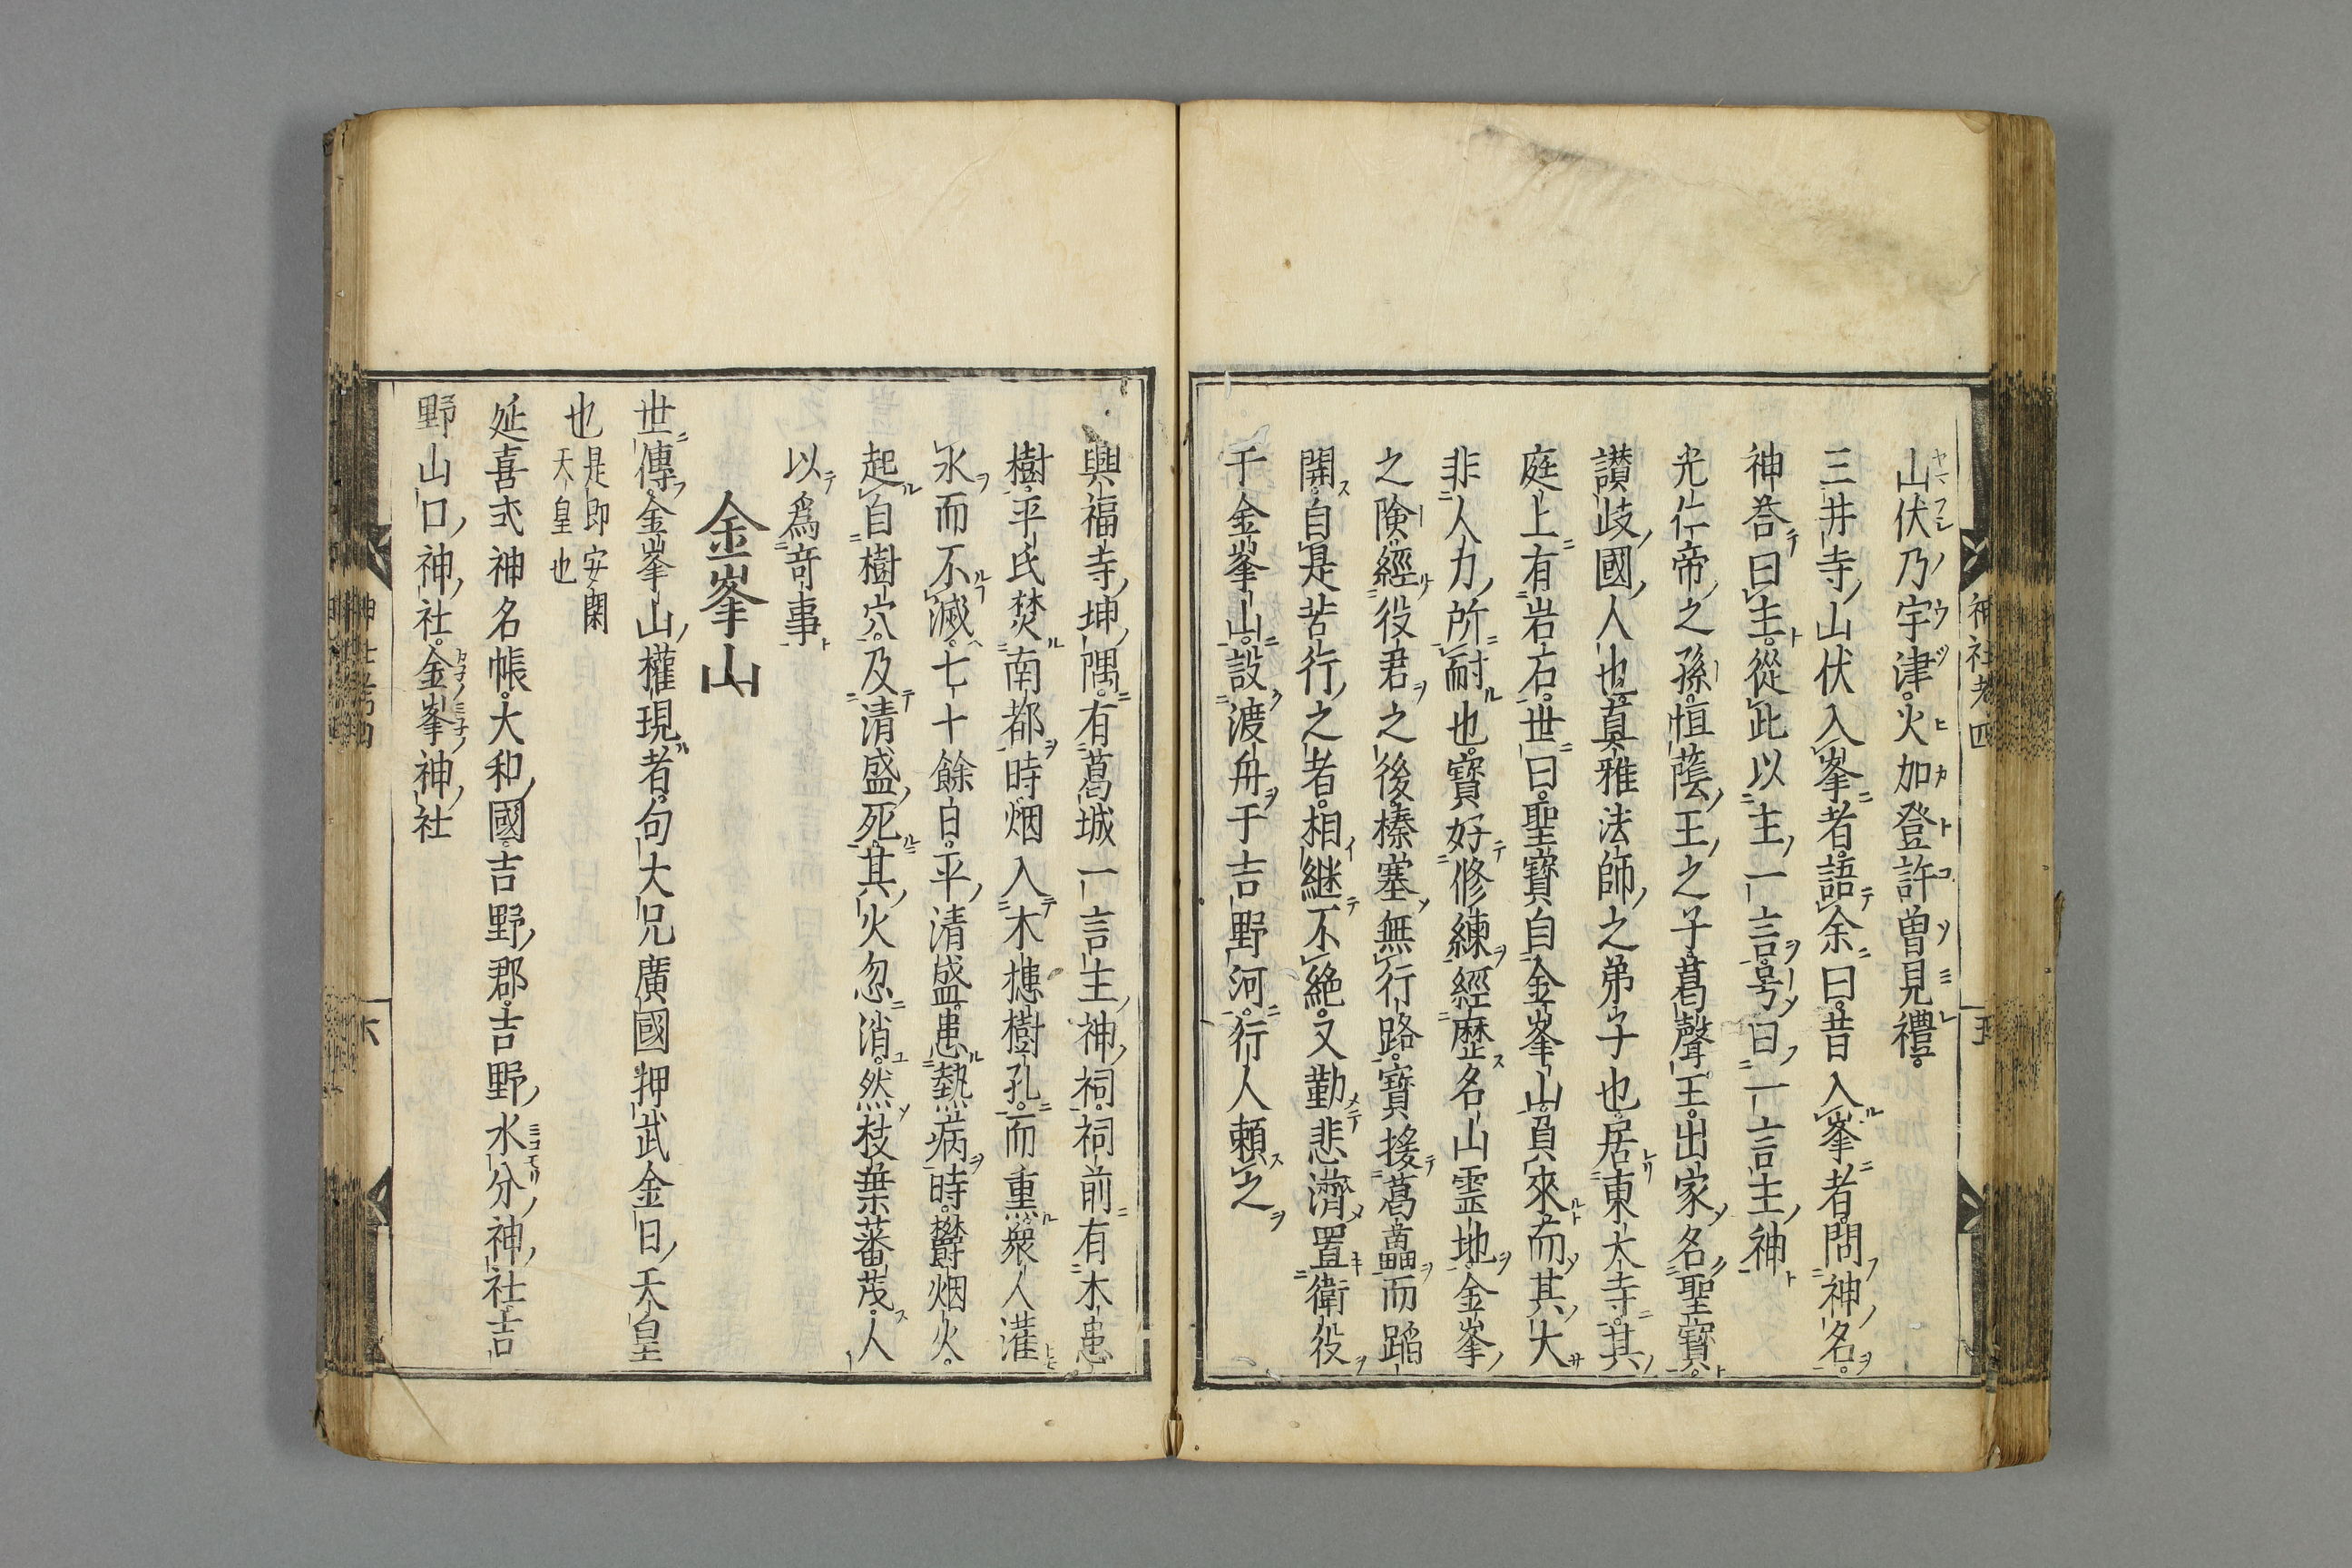 山伏乃宇津火加登許曽見禮
三井寺山伏入峯者語余曰昔入峯者問神名
神荅曰主從此以主一言号曰一言主神
光仁帝之孫恒蔭王之子葛聲王出家名聖寳
讃岐國人也真雅法師之弟子也居東大寺其
庭上有岩石世曰聖寳自金峯山負來而其大
非人力所耐也寳好修練經歴名山霊地金峯
之険經役君之後榛塞無行路寳援葛藟而蹈
開自是苦行之者相継不絶又勤悲濟置衛役
于金峯山設渡舟于吉野河行人頼之
興福寺坤隅有葛城一言主神祠祠前有木患
樹平氏焚南都時烟入木槵樹孔而重熏衆人灌
水而不滅七十餘日平清盛患熱病時欝烟火
起自樹穴及清盛死其火忽消然枝葉蕃茂人
以爲竒事
金峯山
世傳金峯山權現者句大兄廣國押武金日天皇
也是即安閑天皇也
延喜式神名帳大和國吉野郡吉野水分神社吉
野山口神社金峯神社
神社考四
五
六